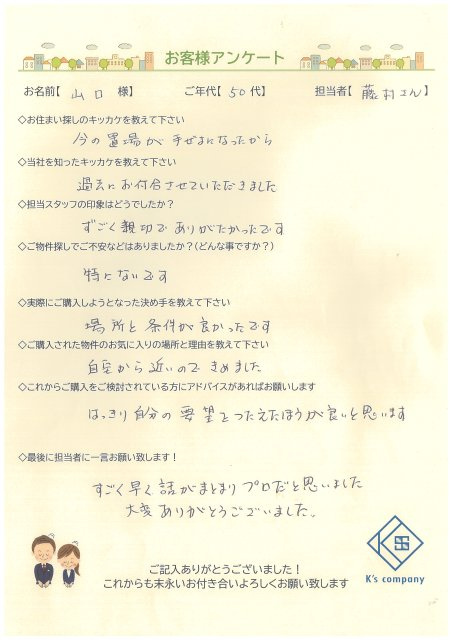 お客様アンケート
お名前【 山口 様】 ご年代【 50代】 担当者【 藤村さん】
◇お住まい探しのキッカケを教えて下さい
今の置場が手ぜまになったから
◇当社を知ったキッカケを教えて下さい
過去にお付合させていただきました
◇担当スタッフの印象はどうでしたか?
すごく親切でありがたかったです
◇ご物件探しでご不安などはありましたか?(どんな事ですか?)
特にないです
◇実際にご購入しようとなった決め手を教えて下さい
場所と条件が良かったです
◇ご購入された物件のお気に入りの場所と理由を教えて下さい
自宅から近いのできめました
◇これからご購入をご検討されている方にアドバイスがあればお願いします
はっきり自分の要望をつたえたほうが良いと思います
◇最後に担当者に一言お願い致します!
すごく早く話がまとまりプロだと思いました
大変ありがとうございました。
ご記入ありがとうございました!
これからも末永いお付き合いよろしくお願い致します
K's company